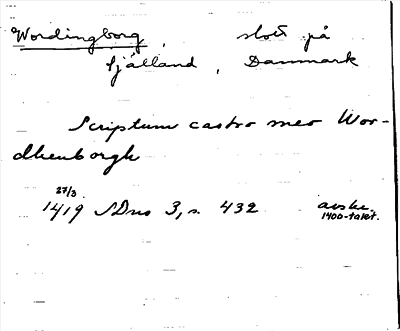 Wordingborg, slott på
Själland, Danmark
Scriptum castro meo Wor-
dhenborgh
27/3
1419 SDns 3, s. 432 avskr.
1400-talet.